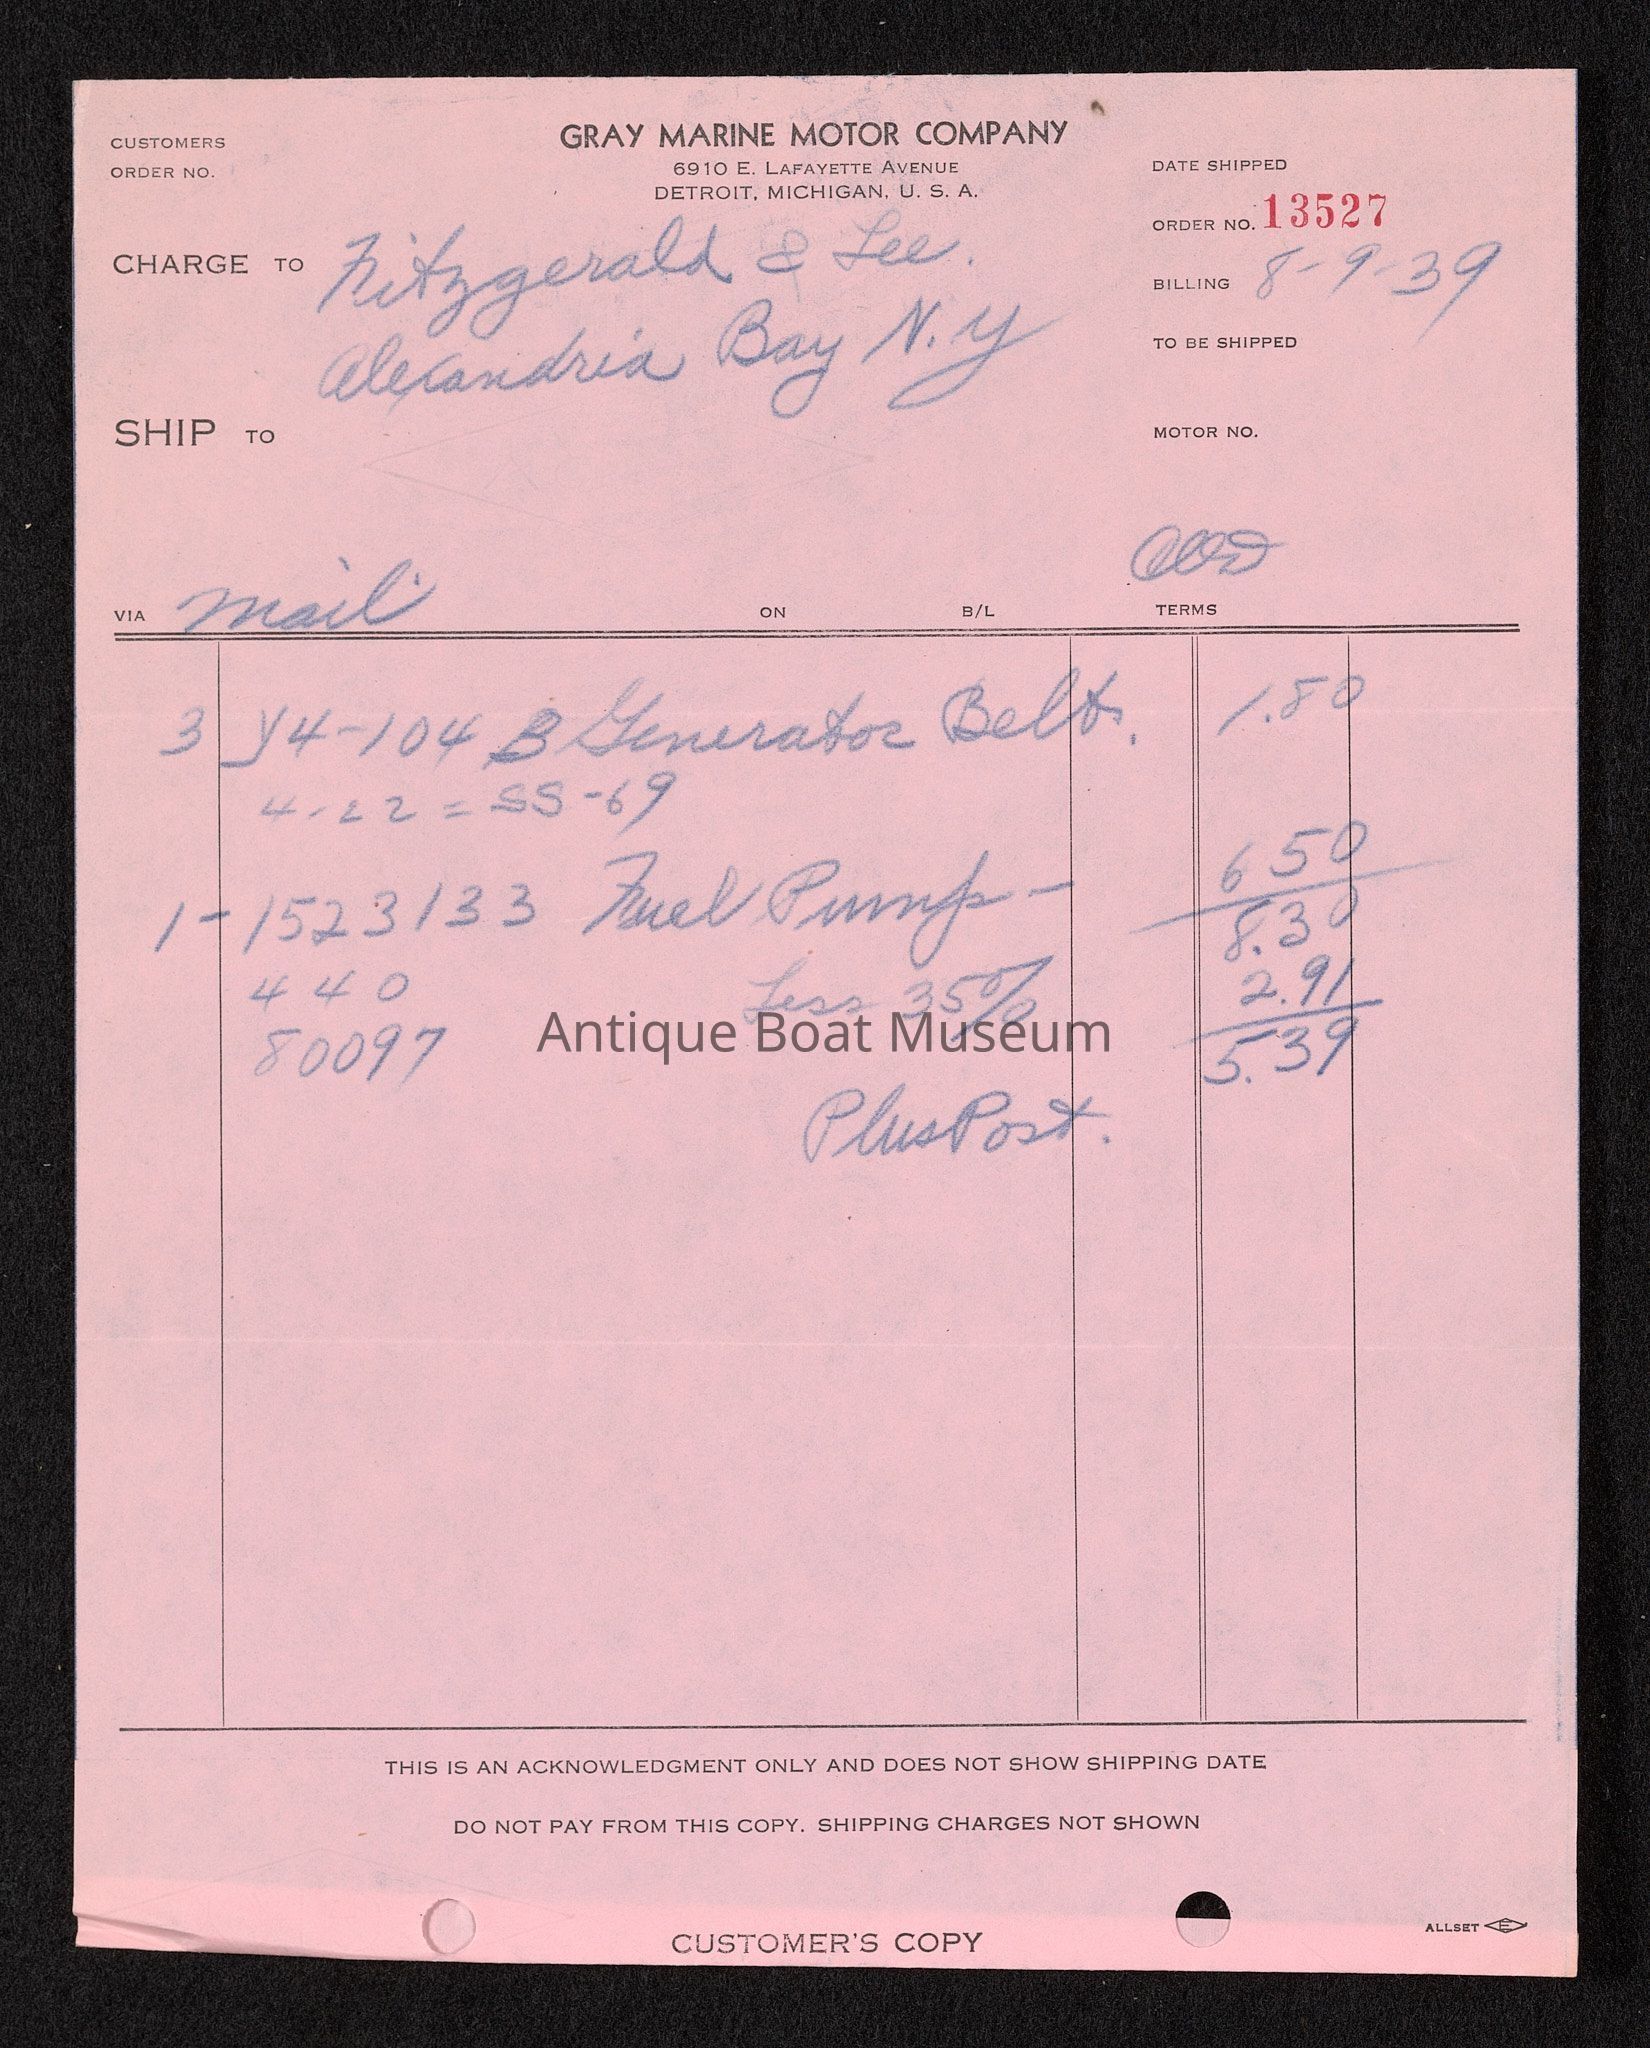 CUSTOMERS
ORDER NO.
GRAY MARINE MOTOR COMPANY
6910 E. LAFAYETTE AVENUE
DETROIT, MICHIGAN, U. S. A.
DATE SHIPPED
ORDER NO. 13527
CHARGE TO Fitzgerald & Lee.
Alexandria Bay N.Y
BILLING 8-9-39
TO BE SHIPPED
SHIP TO
MOTOR NO.
VIA mail
ON
B/L
TERMS
3 Y4-104 B Generator Belts. 1.80
4-22 = SS-69
1- 1523133 Fuel Pump - 6 50
8.30
440 Less 35% 2.91
80097 5.39
Antique Boat Museum
Plus Post.
THIS IS AN ACKNOWLEDGMENT ONLY AND DOES NOT SHOW SHIPPING DATE
DO NOT PAY FROM THIS COPY. SHIPPING CHARGES NOT SHOWN
CUSTOMER'S COPY
ALLSET E